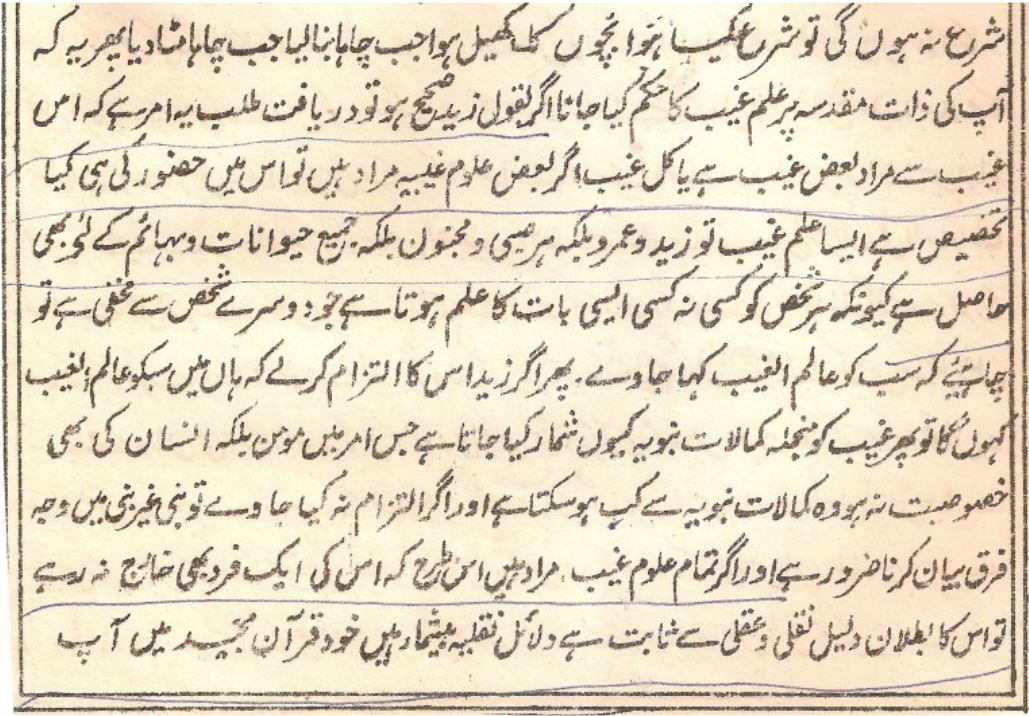 شرع نہ ہوں گی تو شرع کیا ہوا بچوں کا کھیل ہوا جب چاہا بنا لیا جب چاہا مٹا دیا پھر یہ کہ
آپ کی ذات مقدسہ پر علم غیب کا حکم کیا جانا اگر بقول زید صحیح ہو تو دریافت طلب یہ امر ہے کہ اس
غیب سے مراد بعض غیب ہے یا کل غیب اگر بعض علوم غیبیہ مراد ہیں تو اس میں حضور کی ہی کیا
تخصیص ہے ایسا علم غیب تو زید و عمرو بلکہ ہر صبی و مجنون بلکہ جمیع حیوانات و بہائم کے لئے بھی
حاصل ہے کیونکہ ہر شخص کو کسی نہ کسی ایسی بات کا علم ہوتا ہے جو دوسرے شخص سے مخفی ہے تو
چاہئیے کہ سب کو عالم الغیب کہا جاوے۔ پھر اگر زید اس کا التزام کرلے کہ ہاں میں سبکو عالم الغیب
کہوں گا تو پھر غیب کو منجملہ کمالات نبویہ کیوں شمار کیا جاتا ہے جس امر میں مومن بلکہ انسان کی بھی
خصوصیت نہ ہو وہ کمالات نبویہ سے کب ہو سکتا ہے اور اگر التزام نہ کیا جاوے تو نبی غیر نبی میں وجہ
فرق بیان کرنا ضرور ہے اور اگر تمام علوم غیب مراد ہیں اس طرح کہ اس کی ایک فرد بھی خارج نہ رہے
تو اس کا بطلان دلیل نقلی و عقلی سے ثابت ہے دلائل نقلیہ بیشمار ہیں خود قرآن مجید میں آپ